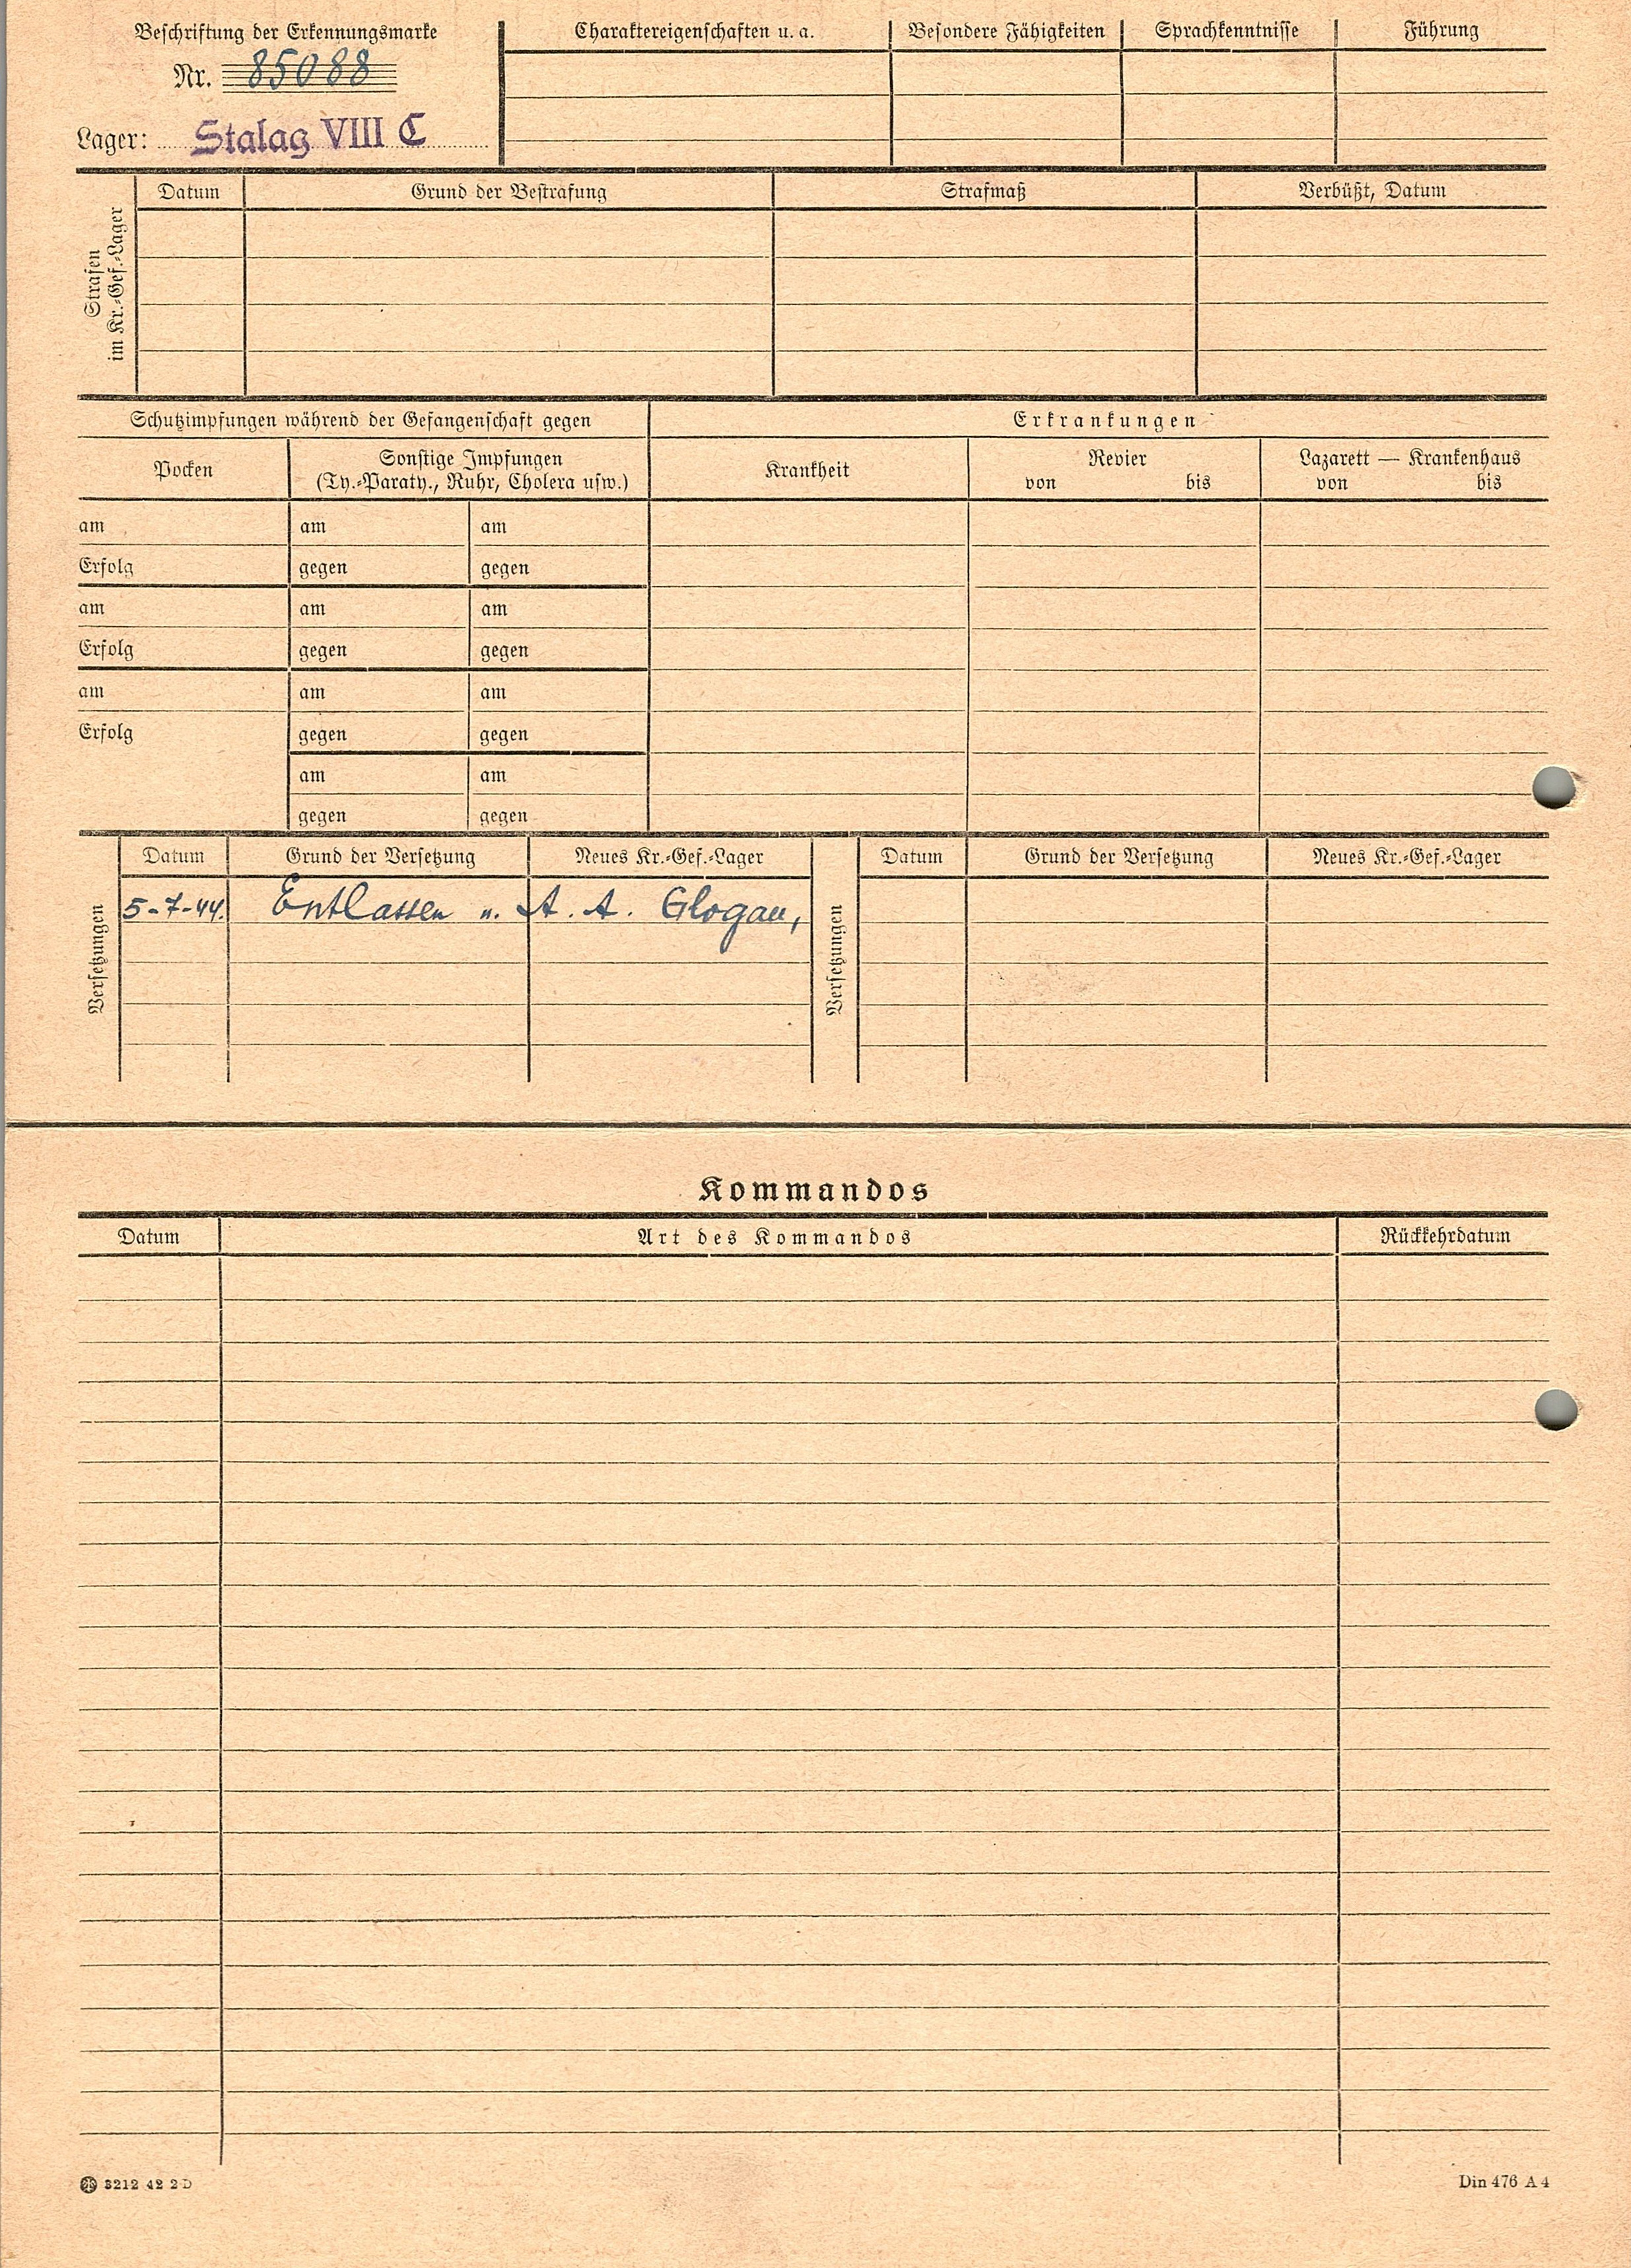 Beschriftung der Erkennungsmarke
Nr. 85088
Lager: Stalag VIII C
Charaktereigenschaften u. a. Besondere Fähigkeiten Sprachkenntnisse Führung
Strafen
im Kr.-Gef.-Lager
Datum Grund der Bestrafung Strafmaß Verbüßt, Datum
Schutzimpfungen während der Gefangenschaft gegen Erkrankungen
Pocken Sonstige Impfungen
(Ty.-Paraty., Ruhr, Cholera usw.)
Krankheit Revier Lazarett — Krankenhaus
von bis von bis
am am am
Erfolg gegen gegen
am am am
Erfolg gegen gegen
am am am
Erfolg gegen gegen
am am
gegen gegen
Versetzungen
Datum Grund der Versetzung Neues Kr.-Gef.-Lager
5-7-44. Entlassen n. A. A. Glogau,
Versetzungen
Datum Grund der Versetzung Neues Kr.-Gef.-Lager
Kommandos
Datum Art des Kommandos Rückkehrdatum
3212 42 2 D Din 476 A 4